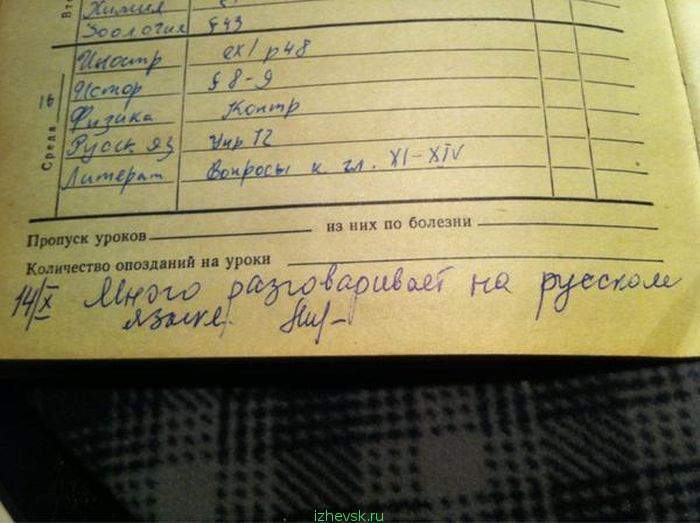 Вт
Химия
Зоология §43
Среда 16
Иностр ex1 p48
Истор §8-9
Физика Контр
Русск яз Упр 72
Литерат Вопросы к гл. XI-XIV
Пропуск уроков из них по болезни
Количество опозданий на уроки
14/X Много разговаривает на русском
языке.
izhevsk.ru